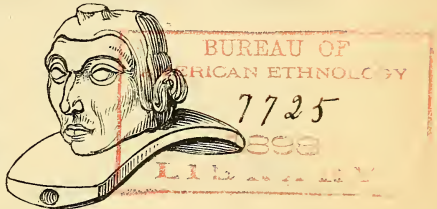 BUREAU OF
AMERICAN ETHNOLOGY
7725
1898
LIBRARY